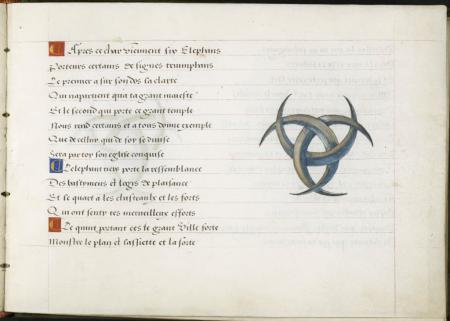 Apres ce char viennent six Elephans
Porteurs certains de signes triumphans
Le premier a sur son dos la clarte
Qui napartient qua ta grant maieste
Et le second qui porte ce grant temple
Nous rend certains et a tous donne exemple
Que de celluy qui de foy se divise
Sera par toy son eglise conquise
Lelephant tiers porte la ressemblance
Des bastymens et logis de plaisance
Et le quart a les chasteaulx et les forts
Qui ont senty tes merveilleux efforts
Le quint portant ces te grant Ville forte
Monstre le plan et lassiette et la sorte